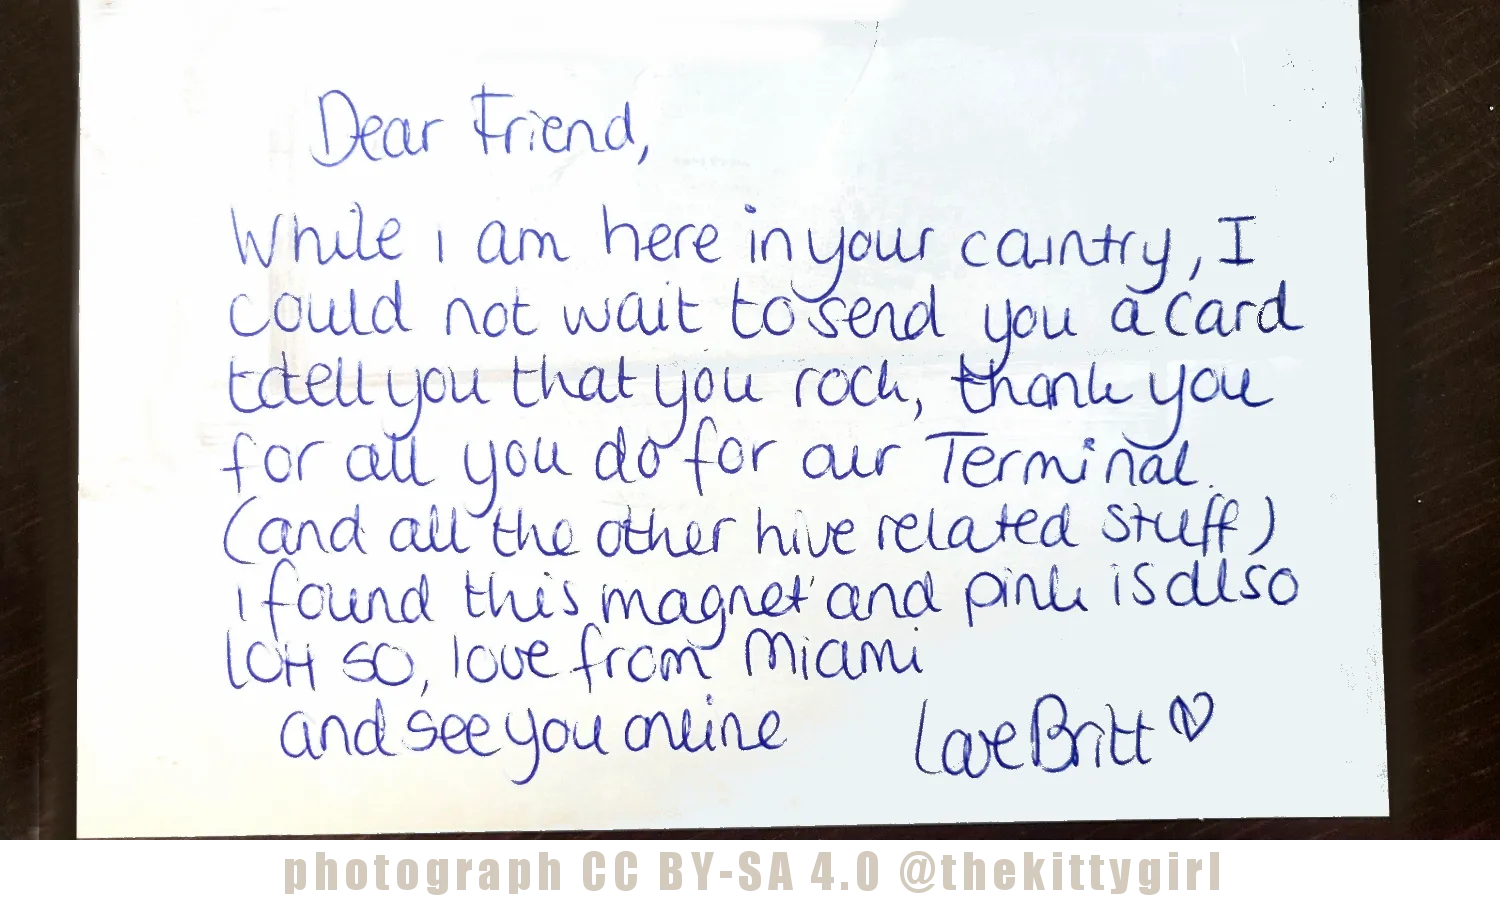 Dear Friend,
While i am here in your country, I
could not wait to send you a card
to tell you that you rock, thank you
for all you do for our Terminal.
(and all the other hive related stuff)
i found this magnet and pink is also
LOH so, love from Miami
and see you online
Love Britt
photograph CC BY-SA 4.0 @thekittygirl